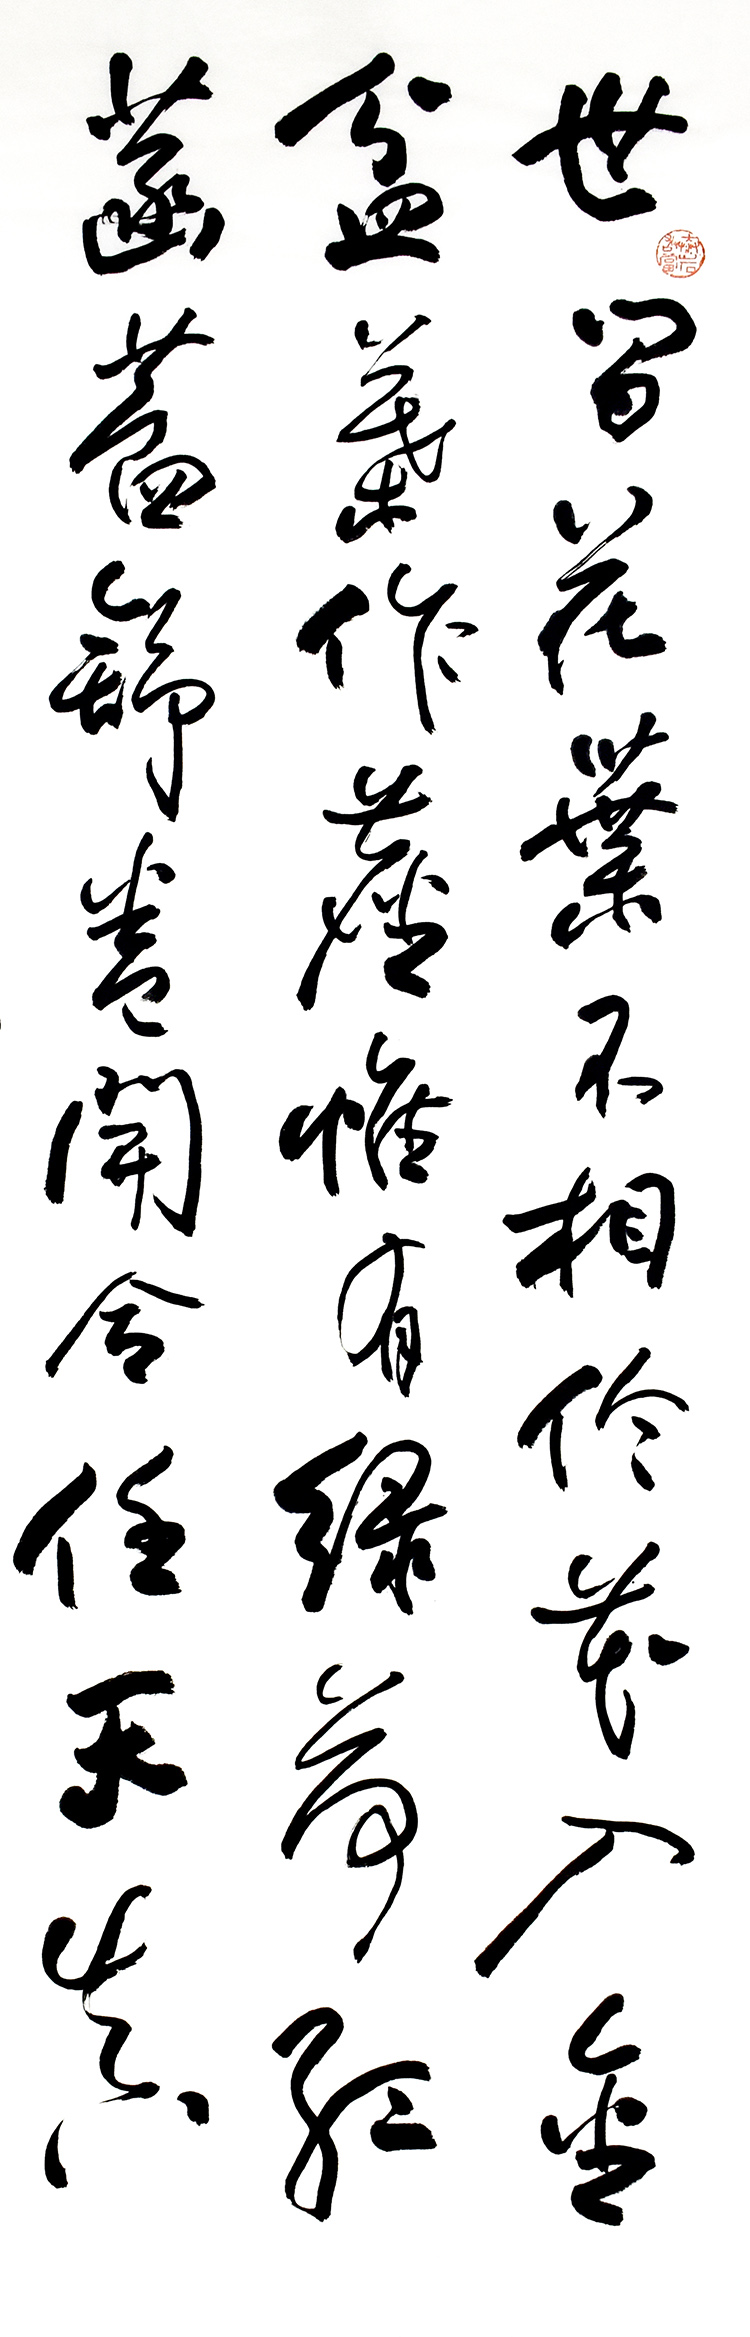 世間花葉不相倫花入金
盆葉作塵惟有綠荷紅
菡萏舒卷開合任天真